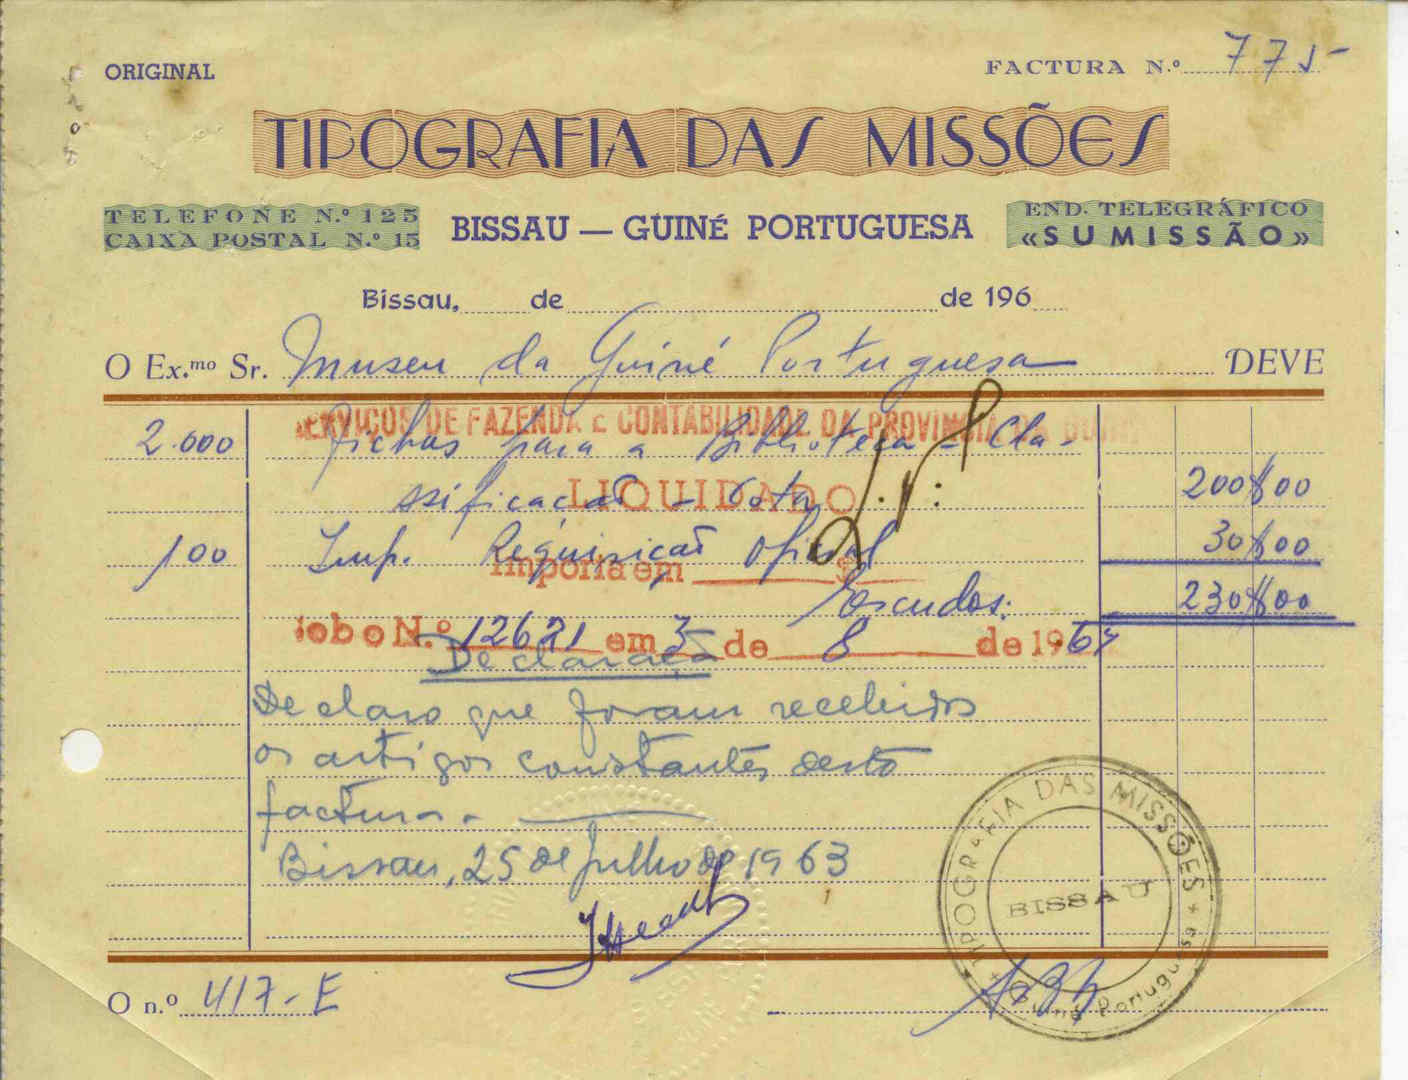 ORIGINAL
FACTURA N.º 775-
TIPOGRAFIA DAS MISSÕES
TELEFONE N.º 125
CAIXA POSTAL N.º 15
BISSAU — GUINÉ PORTUGUESA
END. TELEGRÁFICO
«SUMISSÃO»
Bissau, de de 196
O Ex.mo Sr. Museu da Guiné Portuguesa DEVE
SERVIÇOS DE FAZENDA E CONTABILIDADE DA PROVINCIA DA GUINÉ
2.000 fichas para a Biblioteca - Cla-
ssificação - Cota 200$00
LIQUIDADO
100 Imp. Requisição Oficial 30$00
Importa em $
Escudos: 230$00
N.º 12621 em 3 de 8 de 1963
Declaração
Declaro que foram recebidos
os artigos constantes desta
factura.
Bissau, 25 de Julho de 1963
TIPOGRAFIA DAS MISSÕES
BISSAU
Guiné Portuguesa
O n.º 417-E